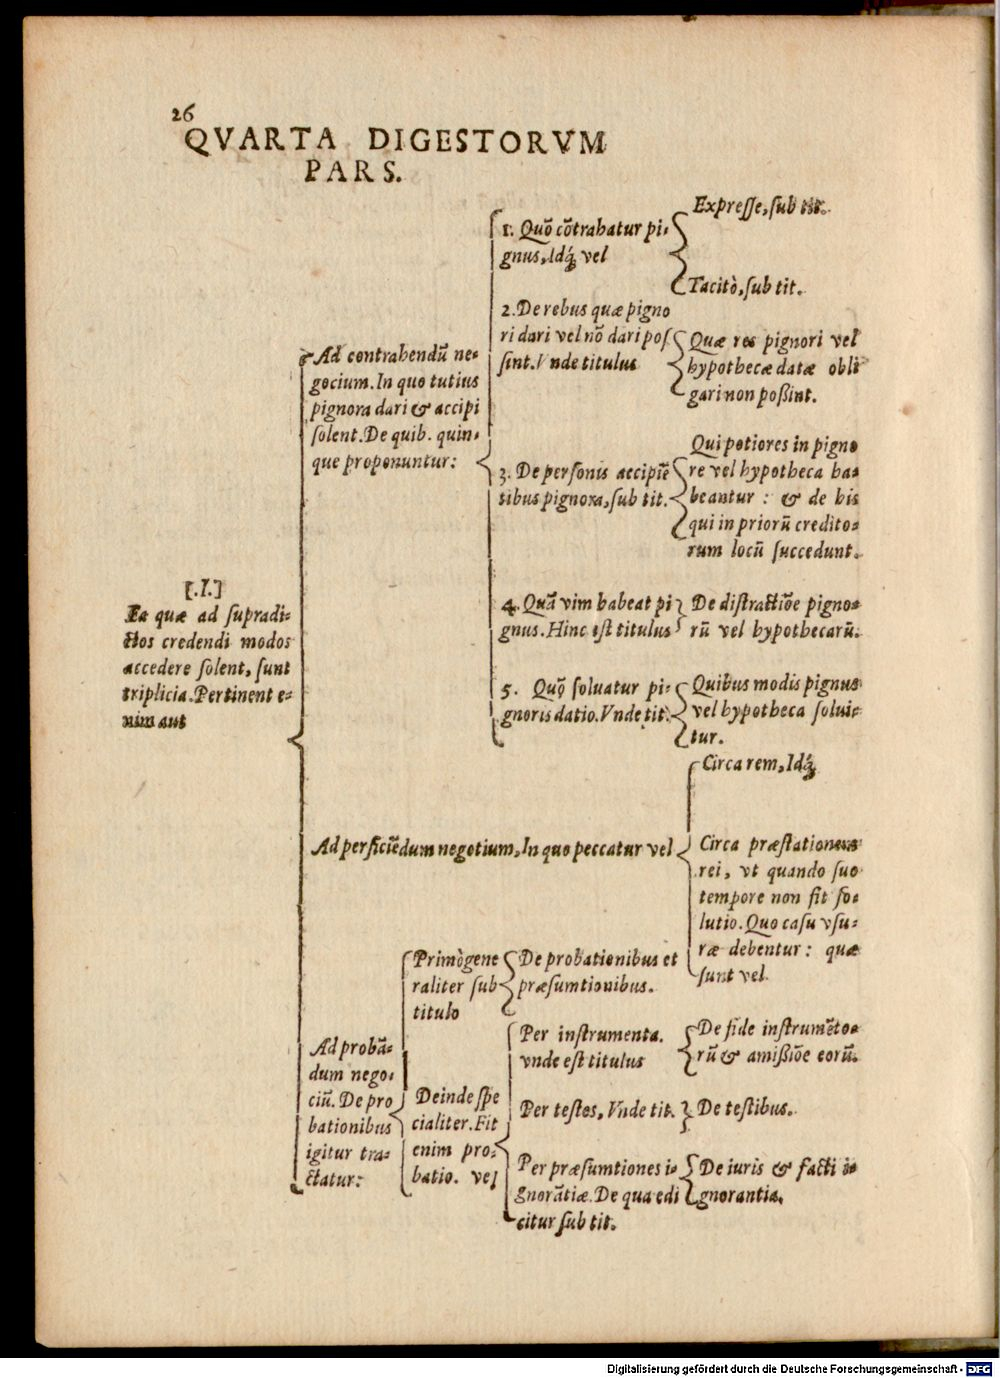 26
QVARTA DIGESTORVM
PARS.
[.I.]
Ea quæ ad supradi-
ctos credendi modos
accedere solent, sunt
triplicia. Pertinent e-
nim aut
Ad contrahendũ ne-
gocium. In quo tutius
pignora dari & accipi
solent. De quib. quin-
que proponuntur:
1. Quõ cõtrahatur pi-
gnus, Idq́; vel
Expresse, sub tit.
Tacitò, sub tit.
2. De rebus quæ pigno
ri dari vel nõ dari pos
sint. Vnde titulus
Quæ res pignori vel
hypothecæ datæ obli
gari non poßint.
3. De personis accipiẽ
tibus pignora, sub tit.
Qui potiores in pigno
re vel hypotheca ha-
beantur : & de his
qui in priorũ credito-
rum locũ succedunt.
4. Quã vim habeat pi
gnus. Hinc est titulus
De distractiõe pigno-
rũ vel hypothecarũ.
5. Quõ soluatur pi-
gnoris datio. Vnde tit.
Quibus modis pignus
vel hypotheca solui-
tur.
Ad perficiẽdum negotium, In quo peccatur vel
Circa rem, Idq́;
Circa præstationem
rei, vt quando suo
tempore non fit so-
lutio. Quo casu vsu-
ræ debentur : quæ
sunt vel
Ad probã-
dum nego-
ciũ. De pro
bationibus
igitur tra-
ctatur:
Primò gene
raliter sub
titulo
De probationibus et
præsumtionibus.
Deinde spe
cialiter. Fit
enim pro-
batio. vel
Per instrumenta.
vnde est titulus
De fide instrumẽto-
rũ & amißiõe eorũ.
Per testes, Vnde tit.
De testibus.
Per præsumtiones i-
gnorãtiæ. De qua edi
citur sub tit.
De iuris & facti i-
gnorantia.
Digitalisierung gefördert durch die Deutsche Forschungsgemeinschaft - DFG